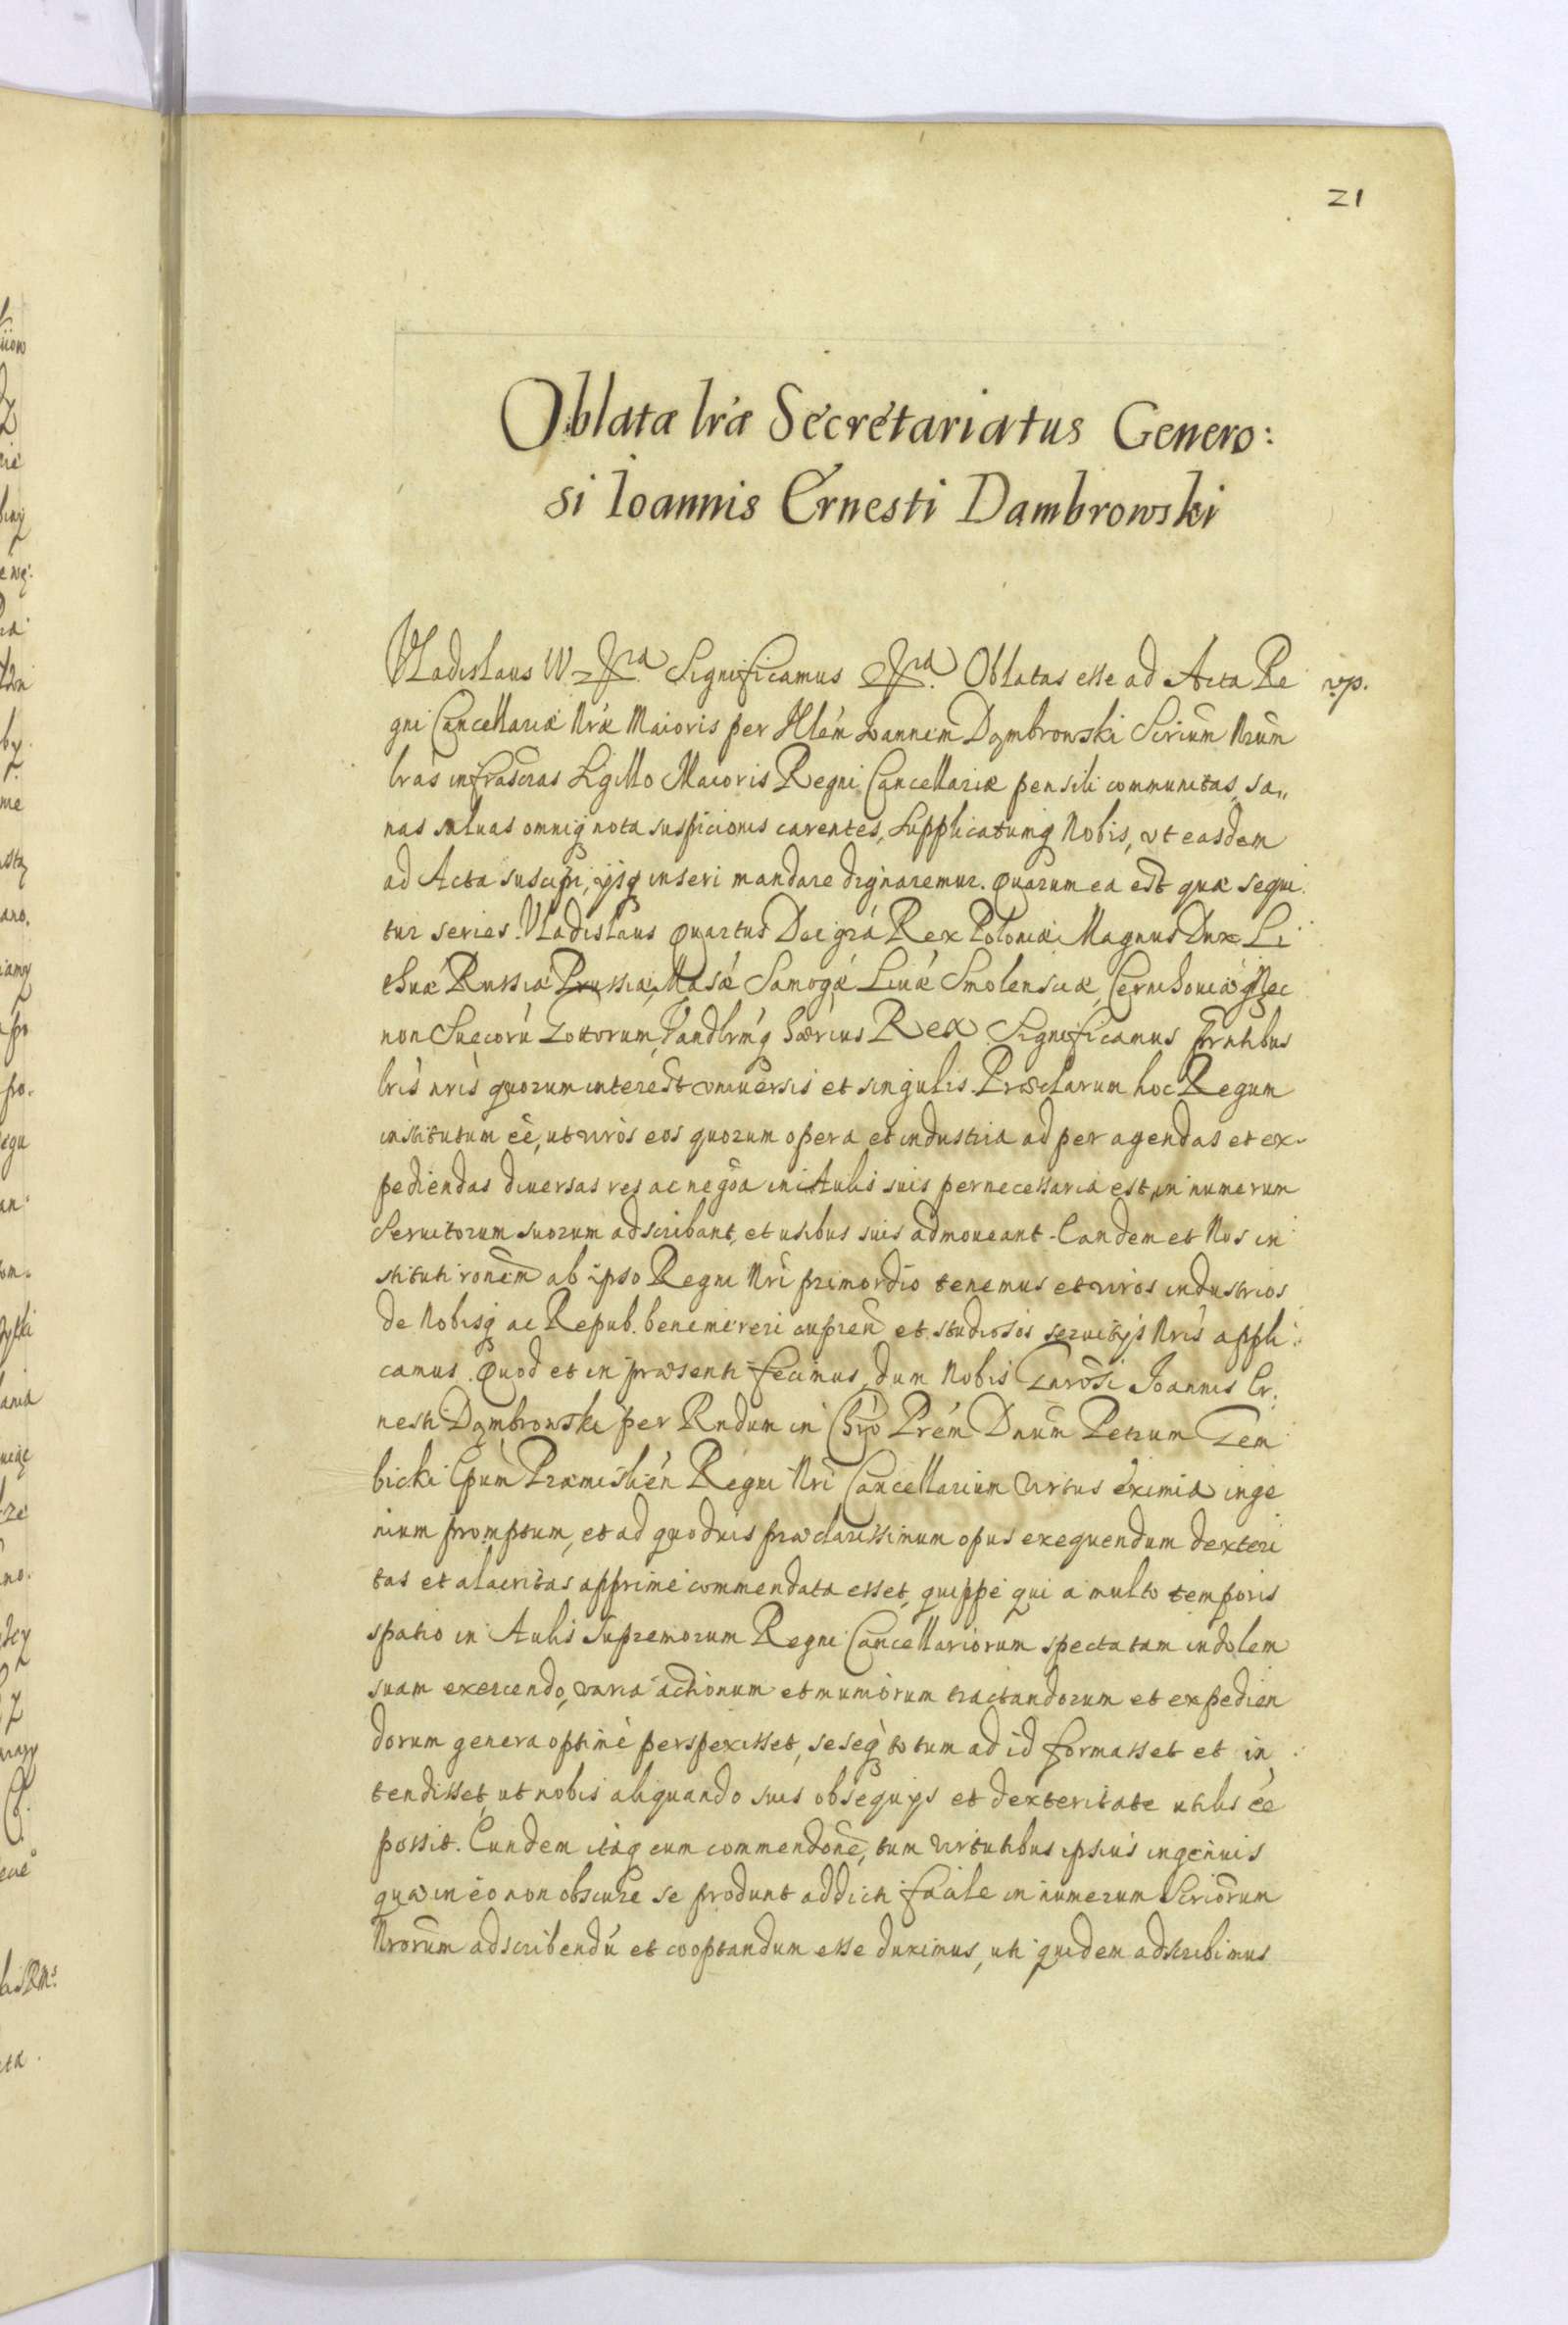 21
Oblatæ lræ Secretariatus Genero:
si Ioannis Ernesti Dambrowski
Vladislaus IV Significamus Oblatas esse ad Acta Re
gni Cancellariæ Nræ Maioris per Joannem Dąmbrowski Nrum
lras infrascras Sigillo Maioris Regni Cancellariæ pensili communitas, sa„
nas saluas omniq nota suspicionis carentes, supplicatumq Nobis, vt easdem
ad Acta suscipi, ijsq inseri mandare dignaremur. Quarum ea est quæ sequi
tur series. Vladislaus Quartus Dei gra Rex Poloniæ Magnus Dux Li
thuæ Russiæ Prussiæ, Masæ Samogæ Liuæ Smolensciæ, Czernihouiæq Nec
non Suecorũ Gottorum, Vandlrmq hærius Rex. Significamus pntibus
lris nris quorum interest vniuersis et singulis. Præclarum hoc Regum
institutum eē, ut viros eos quorum opera et industria ad peragendas et ex-
pediendas diuersas res ac negõa in Aulis suis pernecessaria est, in numerum
Seruitorum suorum adscribant, et usibus suis admoueant. Eandem et Nos in
stituti ronem ab ipso Regni Nri primordio tenemus et viros industrios
de Nobisq ac Repub. benemereri cupien et studiosos seruitijs Nris appli:
camus. Quod et in præsenti fecimus, dum Nobis Gnrosi Joannis Er:
nesti Dąmbrowski per Rndum in Chro Prem Dnum Petrum Gem
bicki Epum Præmislien Regni Nri Cancellarium virtus eximia inge
nium promptum, et ad quoduis præclarissimum opus exequendum dexteri
tas et alacritas apprime commendata esset, quippe qui a multo temporis
spatio in Aulis Supremorum Regni Cancellariorum spectatam indolem
suam exercendo, varia actionum et muniorum tractandorum et expedien
dorum genera optime perspexisset, seseq totum ad id formasset et in
tendisset, ut nobis aliquando suis obsequijs et dexteritate utilis eē
possit. Eundem itaq cum commendone, tum virtutibus ipsius ingenuis
quæ in eo non obscure se produnt addicti facile in numerum Scriorum
Nrorum adscribendũ et cooptandum esse duximus, uti quidem adscribimus